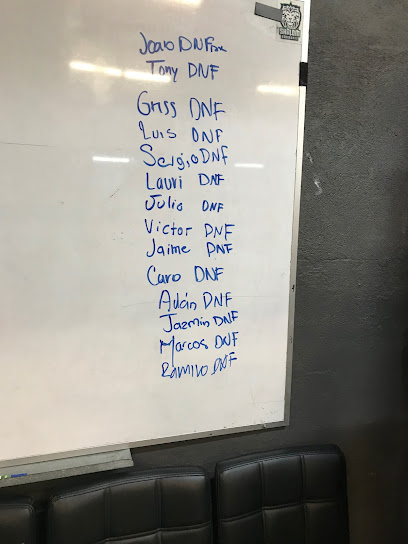 Tony DNF
Griss DNF
Luis DNF
Sergio DNF
Lauri DNF
Julio DNF
Victor DNF
Jaime DNF
Caro DNF
Adán DNF
Jazmin DNF
Marcos DNF
Ramiro DNF